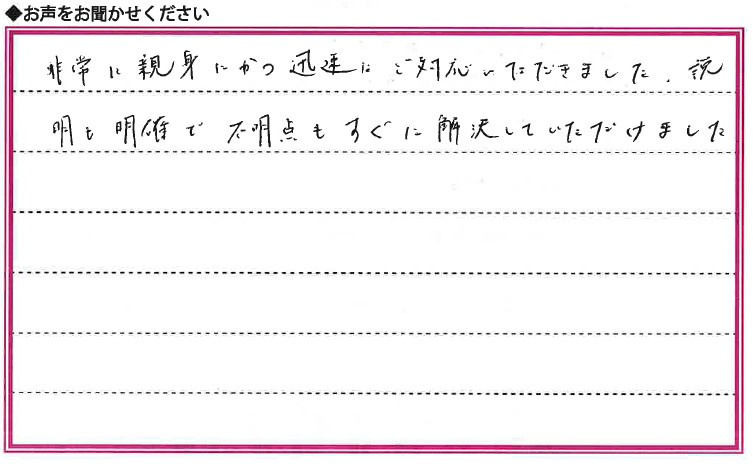 ◆お声をお聞かせください
非常に親身にかつ迅速にご対応いただきました。説
明も明確で不明点もすぐに解決していただけました